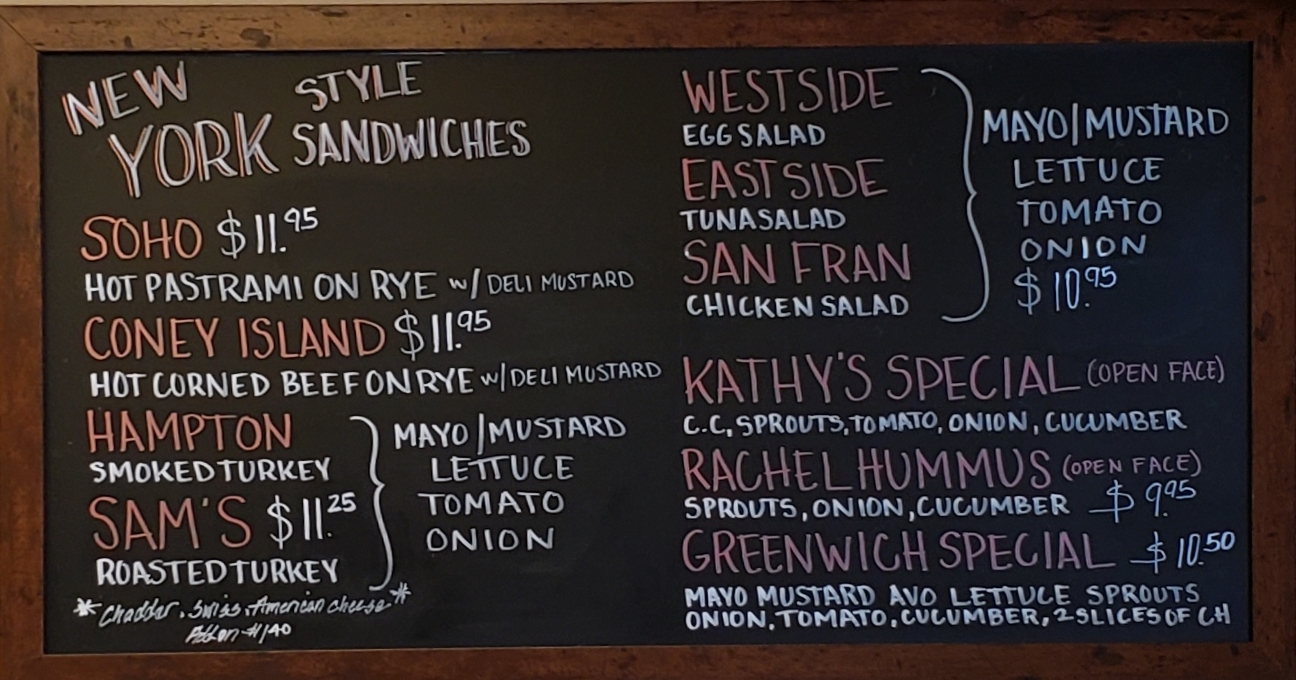 NEW YORK STYLE SANDWICHES
SOHO $11.95
HOT PASTRAMI ON RYE w/ DELI MUSTARD
CONEY ISLAND $11.95
HOT CORNED BEEF ON RYE w/ DELI MUSTARD
HAMPTON
SMOKED TURKEY
SAM'S $11.25
ROASTED TURKEY
MAYO/MUSTARD
LETTUCE
TOMATO
ONION
*Cheddar, Swiss, American cheese*
Add on
WESTSIDE
EGG SALAD
EASTSIDE
TUNA SALAD
SAN FRAN
CHICKEN SALAD
MAYO/MUSTARD
LETTUCE
TOMATO
ONION
$10.95
KATHY'S SPECIAL (OPEN FACE)
C.C, SPROUTS, TOMATO, ONION, CUCUMBER
RACHEL HUMMUS (OPEN FACE)
SPROUTS, ONION, CUCUMBER $9.95
GREENWICH SPECIAL $10.50
MAYO MUSTARD AVO LETTUCE SPROUTS
ONION, TOMATO, CUCUMBER, 2 SLICES OF CH